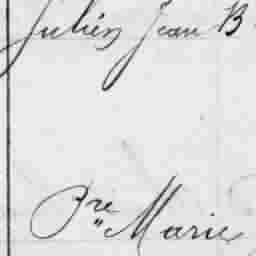 Julien Jean B
Pre Marie